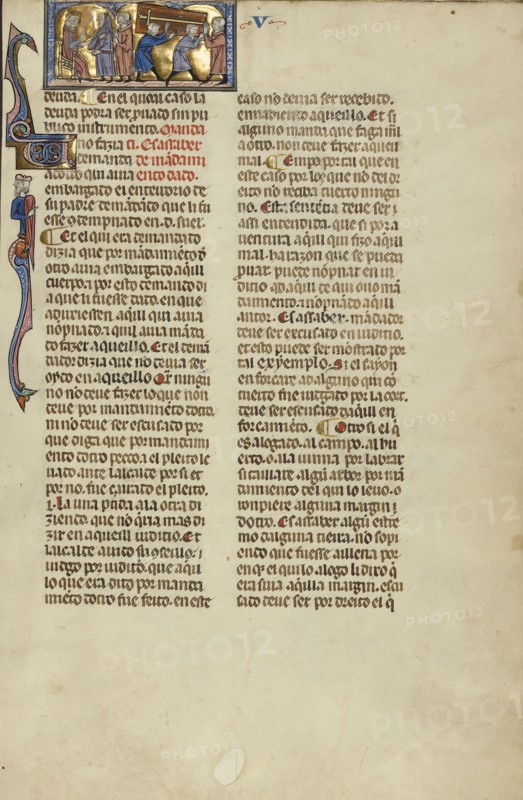 V
deuda. ¶ En el quoal caso la
deuda podra ser puado sin pu
blico instrumento. Manda
no fazia ti. Es assaber
demanda de mādami
ento dado.
embargado el enterrorio de
su padre
¶ Et el qui era demandado
dizia que por mādamiēto d
otro auia embargado aq̄ill
cuerpo. ⁊ por esto demando di
a que li fuesse dado. en que
aduriessen. aqūi qui auia
nōpnado. ⁊ quil auia māda
do fazer aqueillo. Et el demā
dador dizia que no deuia ser
oydo en aqueillo. Or ningū
no no deue fazer lo que non
deue por mandamiēto dotro.
ni no deue ser escusado por
que diga que por mandami
ento dotro pecco. ⁊ el pleito le
uado ante lalcalde por si et
por no. fue cayado el pleito.
⁊. La una pida a la otra di
ziendo. que nō q̄ria mas di
zir en aqueill iudicio. Et
lalcalde auido su cōseillo. ⁊
iudgo por iudicio. que aq̄ui
lo que era dito por manda
miēto dotro fue feito. en este
caso nō deuia ser recebido.
ennadiendo aqueillo. Et si
alguno manda que faga mal
a otro. non deue fazer aqueil
mal. ¶ Empo por tal que en
este caso por los que no dei dr
eito nō reciba tuerto ningū
no. Est. sentēcia deue ser ⁊
assi entendida. que si por a
uentura aq̄ill qui fizo aq̄ill
mal. ha razon que se pueda
puar. puede nōpnar en iu
dicio ad aq̄ill de qui ouo mā
damiento. ⁊ nōpnado aq̄ill
autor. Es assaber. mādador
deue ser escusado en iudicio.
et esto puede ser mōstrado por
tal exyemplo. Si el sayon
en forcare ad alguno qui cō
tuerto fue iudgado por la cort.
deue ser escusado daq̄ill en
forcamiēto. ¶ Otro si el q̄
es alogado. al campo. al hu
erto. o a la uinna por labrar
si taillare algū arbor por mā
damiento del qui lo leuo. o
ronpiere alguna margin ⁊
dotro. Es assaber algū estre
mo dalguna tierra. no sopi
endo que fuesse aillena por
en q̄ el qui lo alogo li dixo q̄
era suia aq̄illa margin. escu
sado deue ser por dreito el q̄